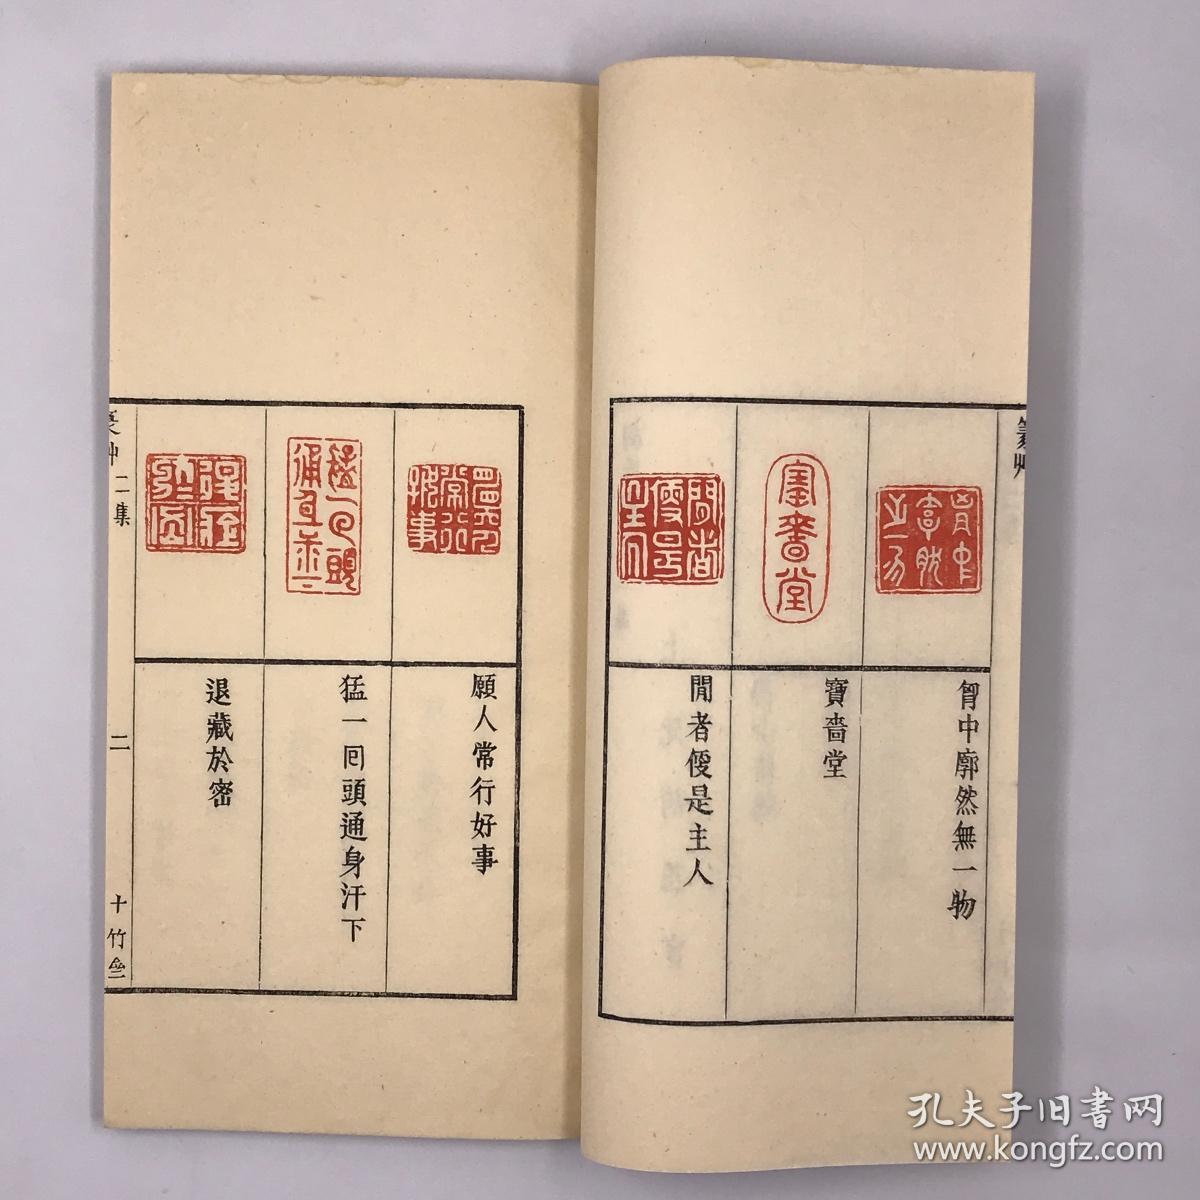 胷中廓然無一物
寶嗇堂
閒者便是主人
願人常行好事
猛一囘頭通身汗下
退藏於密
二集
二
十竹
孔夫子旧书网
www.kongfz.com